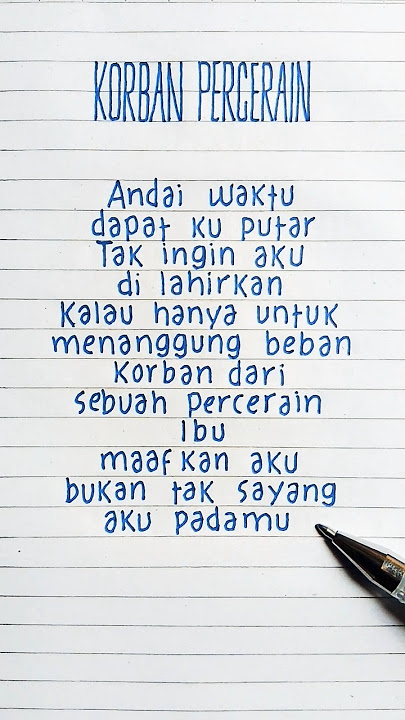 KORBAN PERCERAIN
Andai waktu
dapat ku putar
Tak ingin aku
di lahirkan
Kalau hanya untuk
menanggung beban
Korban dari
sebuah percerain
Ibu
maafkan aku
bukan tak sayang
aku padamu